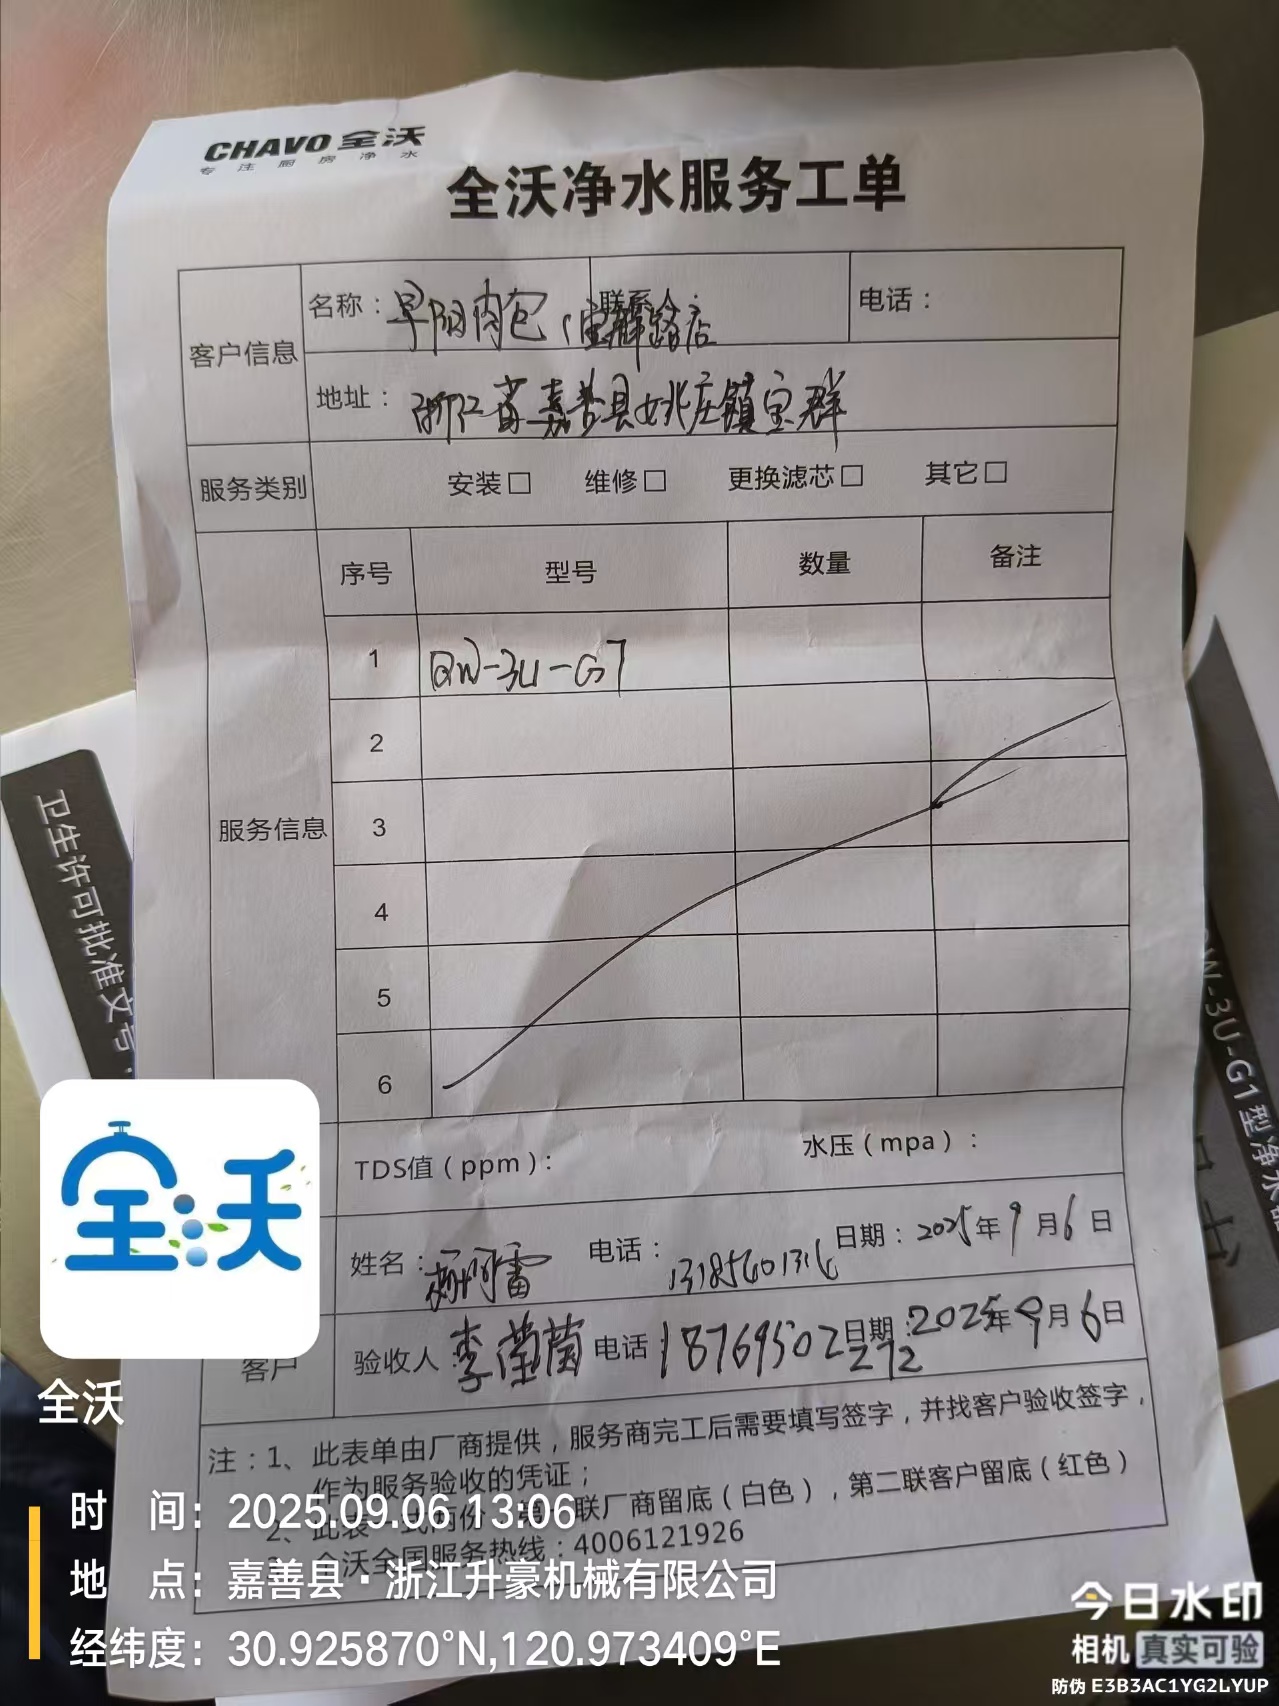 CHAVO 全沃
专注厨房净水
全沃净水服务工单
客户信息
名称：早阳肉包（宝群路店
联系人：
电话：
地址：浙江省嘉善县姚庄镇宝群
服务类别
安装□ 维修□ 更换滤芯□ 其它□
服务信息
序号 型号 数量 备注
1 QW-3U-G7
2
3
4
5
6
TDS值（ppm）： 水压（mpa）：
姓名： 电话： 日期：2025年9月6日
客户
验收人：李莹茵 电话：18769502272 日期：2025年9月6日
注：1、此表单由厂商提供，服务商完工后需要填写签字，并找客户验收签字，
作为服务验收的凭证；
2、此表一式两份，第一联厂商留底（白色），第二联客户留底（红色）
全沃全国服务热线：4006121926
卫生许可批准文号：
QW-3U-G1型净水
全沃
全沃
时 间：2025.09.06 13:06
地 点：嘉善县·浙江升豪机械有限公司
经纬度：30.925870°N,120.973409°E
今日水印
相机 真实可验
防伪 E3B3AC1YG2LYUP